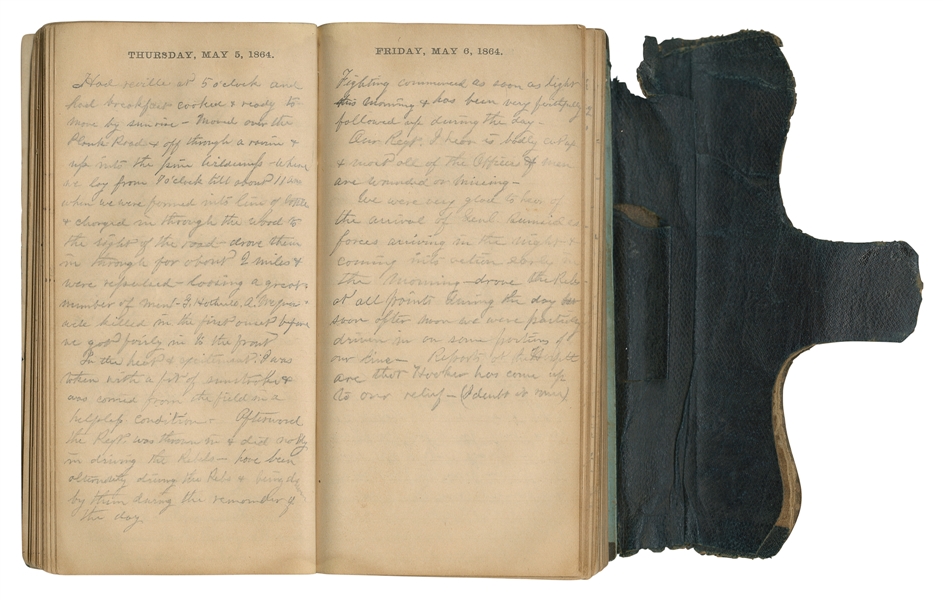 THURSDAY, MAY 5, 1864.
Had reville at 5 o'clock and
had breakfast cooked & ready to
move by sunrise - Moved over the
Plank Road & off through a ravine &
up into the pine where
we lay from 8 o'clock till about 11 am
when we were formed into line of battle
& charged in through the wood to
the right of the road - drove them
in through for about 2 miles &
were repulsed - loosing a great
number of men - A.
were killed in the first onset before
we got fairly in to the front
In the heat & excitement I was
taken with a fit of sunstroke &
was carried from the field in a
helpless condition - Afterward
the Regt. was thrown in & did nobly
in driving the Rebels - have been
alternately driving the Rebs & being
by them during the remainder of
the day.
FRIDAY, MAY 6, 1864.
Fighting commenced as soon as light
this morning & has been very
followed up during the day -
Our Regt. I hear is badly cut up
& most all of the Officers & men
are wounded or missing -
We were very glad to hear of
the arrival of Genl. Burnside's
forces arriving in the night &
coming into action early in
the morning - drove the Rebs
at all points during the day but
soon after noon we were partially
driven in on some portion of
our line - Reports at the
are that Hooker has come up
to our relief - (I doubt it